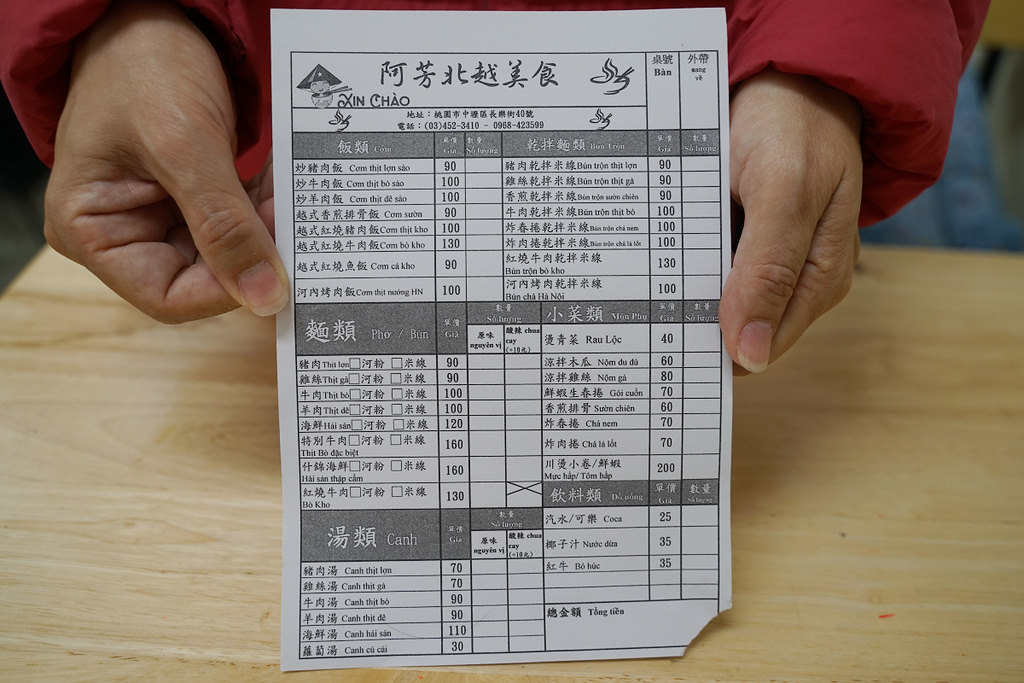 阿芳北越美食
XIN CHÀO
地址：桃園市中壢區長樂街40號
電話：(03)452-3410 - 0968-423599
桌號 Bàn
外帶 mang về
飯類 Cơm 單價 Giá 數量 Số lượng
炒豬肉飯 Cơm thịt lợn sào 90
炒牛肉飯 Cơm thịt bò sào 100
炒羊肉飯 Cơm thịt dê sào 100
越式香煎排骨飯 Cơm sườn 90
越式紅燒豬肉飯 Cơm thịt kho 100
越式紅燒牛肉飯 Cơm bò kho 130
越式紅燒魚飯 Cơm cá kho 90
河內烤肉飯 Cơm thịt nướng HN 100
乾拌麵類 Bún Trộn 單價 Giá 數量 Số lượng
豬肉乾拌米線 Bún trộn thịt lợn 90
雞絲乾拌米線 Bún trộn thịt gà 90
香煎乾拌米線 Bún trộn sườn chiên 90
牛肉乾拌米線 Bún trộn thịt bò 100
炸春捲乾拌米線 Bún trộn chả nem 100
炸肉捲乾拌米線 Bún trộn chả lá lốt 100
紅燒牛肉乾拌米線
Bún trộn bò kho 130
河內烤肉乾拌米線
Bún chả Hà Nội 100
麵類 Phở Bún 單價 Giá 數量 Số lượng
原味 nguyên vị
酸辣 chua cay (+10元)
豬肉 Thịt lợn □河粉 □米線 90
雞絲 Thịt gà □河粉 □米線 90
牛肉 Thịt bò □河粉 □米線 100
羊肉 Thịt dê □河粉 □米線 100
海鮮 Hải sản □河粉 □米線 120
特別牛肉 □河粉 □米線
Thịt Bò đặc biệt 160
什錦海鮮 □河粉 □米線
Hải sản thập cẩm 160
紅燒牛肉 □河粉 □米線
Bò Kho 130
湯類 Canh 單價 Giá 數量 Số lượng
原味 nguyên vị
酸辣 chua cay (+10元)
豬肉湯 Canh thịt lợn 70
雞絲湯 Canh thịt gà 70
牛肉湯 Canh thịt bò 90
羊肉湯 Canh thịt dê 90
海鮮湯 Canh hải sản 110
蘿蔔湯 Canh củ cải 30
小菜類 Món Phụ 單價 Giá 數量 Số lượng
燙青菜 Rau Lộc 40
涼拌木瓜 Nộm du đủ 60
涼拌雞絲 Nộm gà 80
鮮蝦生春捲 Gỏi cuốn 70
香煎排骨 Sườn chiên 60
炸春捲 Chả nem 70
炸肉捲 Chả lá lốt 70
川燙小卷/鮮蝦
Mực hấp/ Tôm hấp 200
飲料類 Đồ uống 單價 Giá 數量 Số lượng
汽水/可樂 Coca 25
椰子汁 Nước dừa 35
紅牛 Bò húc 35
總金額 Tổng tiền